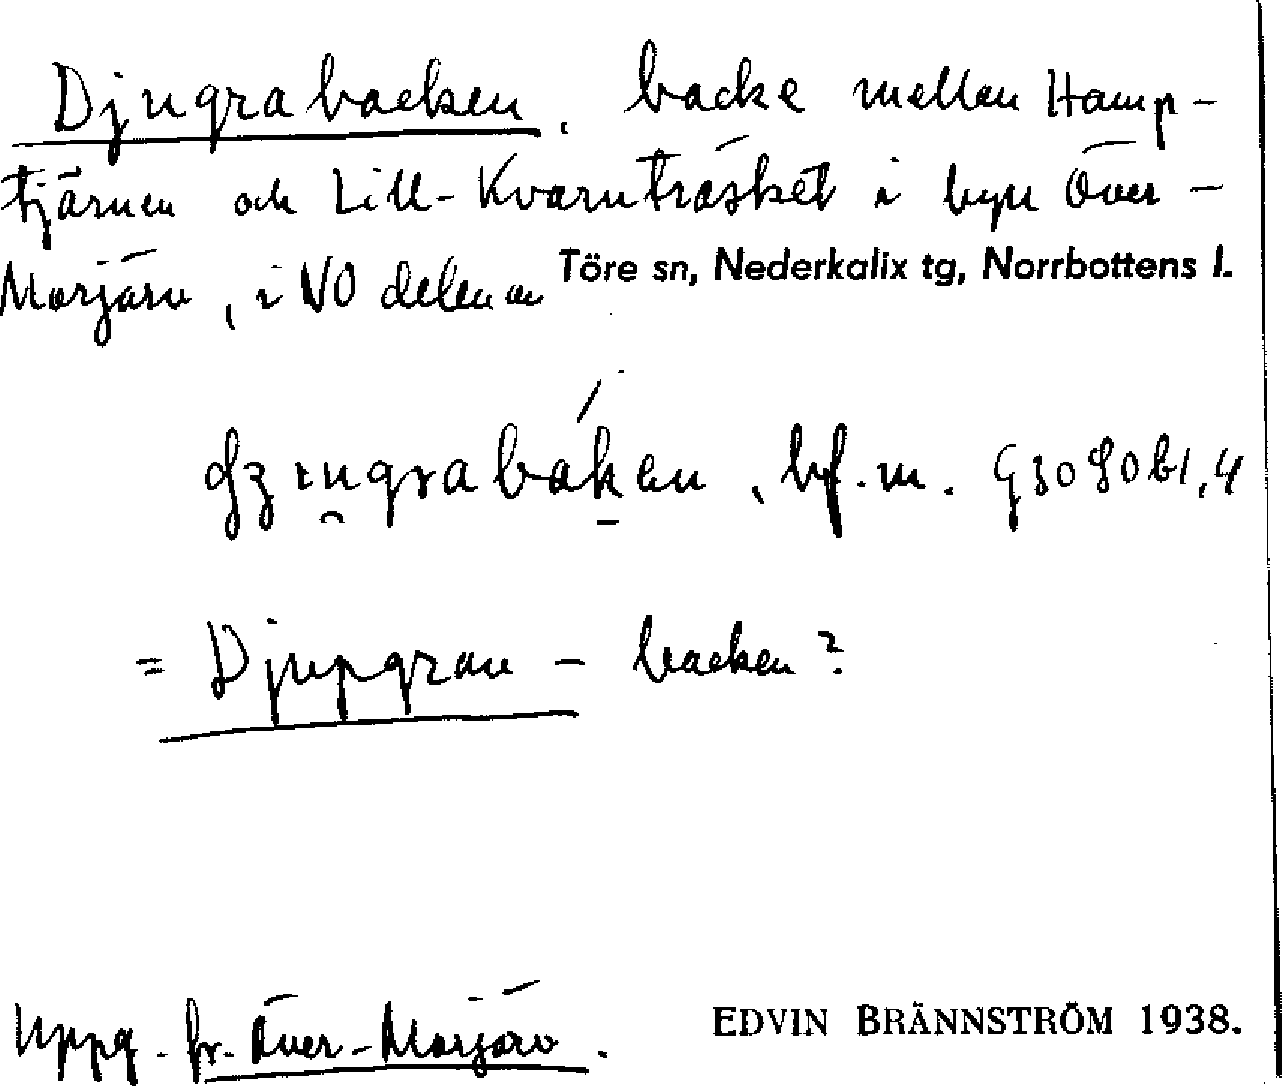 Djugrabacken, backe mellan Hamp-
tjärnen och Lill-Kvarnträsket i byn Över-
Morjärv, i NO delen av Töre sn, Nederkalix tg, Norrbottens l.
bf. m.
= Djupgran - backen?
Uppg. fr. Över-Morjärv. EDVIN BRÄNNSTRÖM 1938.